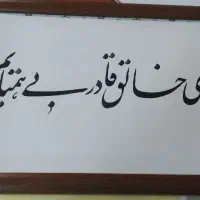 خالق قادر بی همتایم